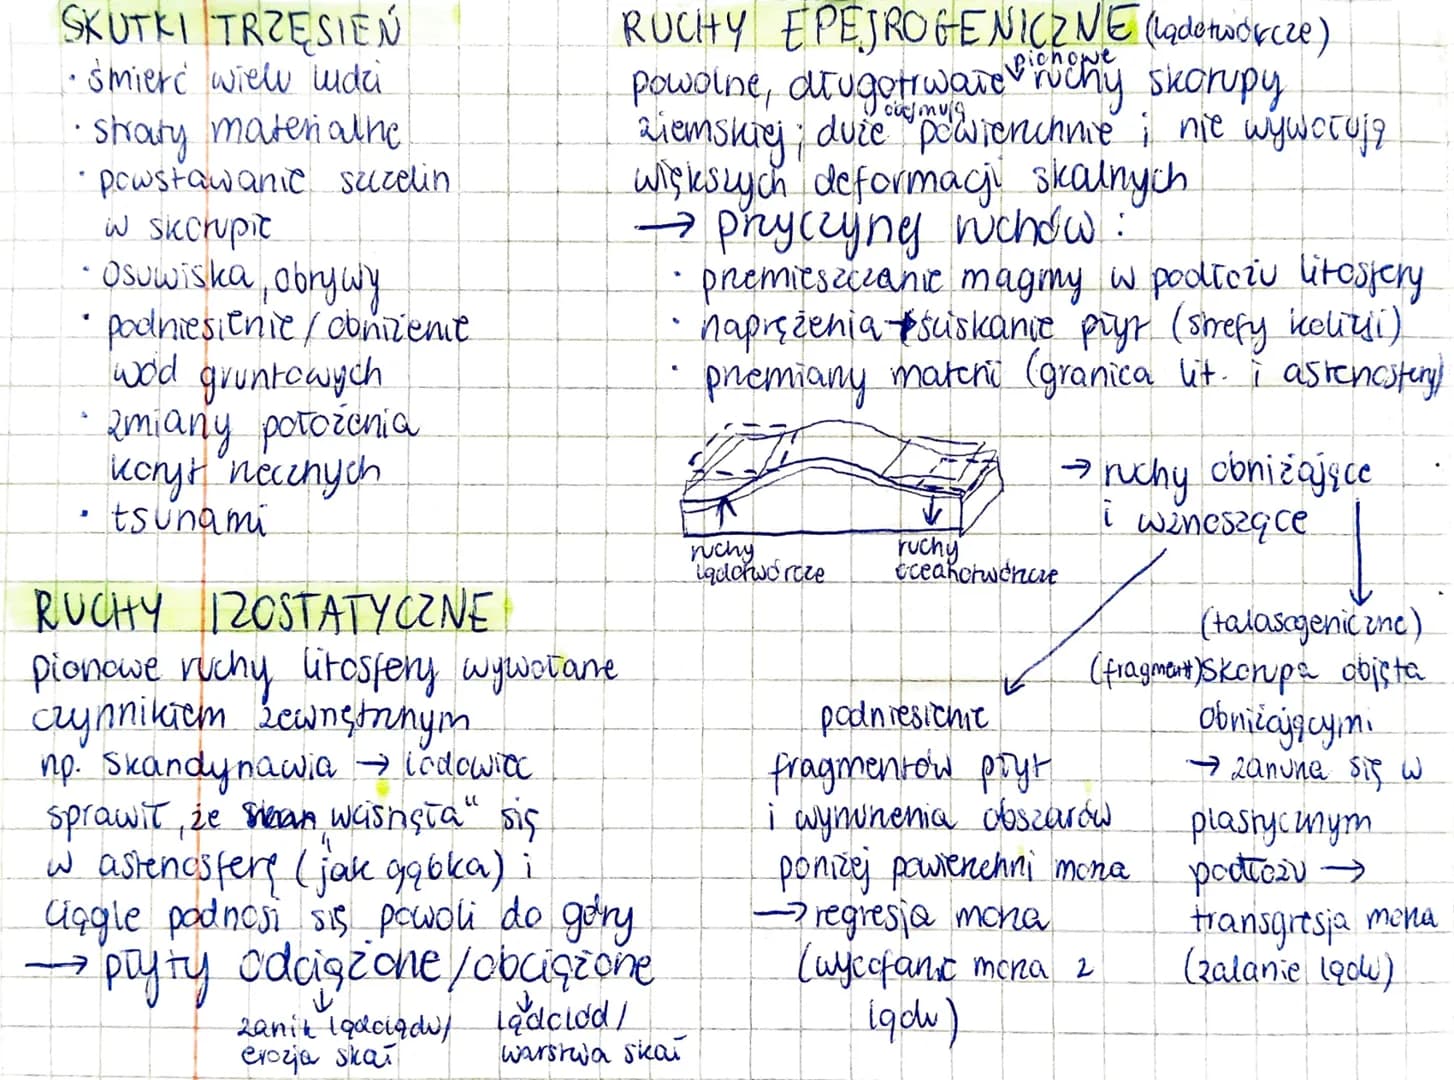 SKUTKI TRZĘSIEŃ
· śmierć wielu ludzi
· straty materialne
· powstawanie szczelin
w skorupie
· osuwiska, obrywy
· podniesienie / obniżenie
wód gruntowych
· zmiany położenia
koryt rzecznych
· tsunami
RUCHY IZOSTATYCZNE
pionowe ruchy litosfery wywołane
czynnikiem zewnętrznym
np. Skandynawia → lodowiec
sprawił, że „wcisnęła" się
w astenosferę (jak gąbka) i
ciągle podnosi się powoli do góry
→ płyty odciążone/obciążone
↓ ↓
zanik lądolądu/ lądolód/
erozja skał warstwa skał
RUCHY EPEJROGENICZNE (lądotwórcze)
pionowe
powolne, długotrwałe ruchy skorupy
obejmują
ziemskiej; duże powierzchnie i nie wywołują
większych deformacji skalnych
→ przyczyny ruchów:
· przemieszczanie magmy w podłożu litosfery
· naprężenia + ściskanie płyt (strefy kolizji)
· przemiany materii (granica lit. i astenosfery)
ruchy
lądotwórcze
ruchy
oceanotwórcze
→ ruchy obniżające
i wznoszące
podniesienie
fragmentów płyt
i wynurzenia obszarów
poniżej powierzchni morza
→ regresja morza
(wycofanie morza z
lądu)
(talasogeniczne)
(fragment) skorupa objęta
obniżającymi
→ zanurza się w
plastycznym
podłożu →
transgresja morza
(zalanie lądu)